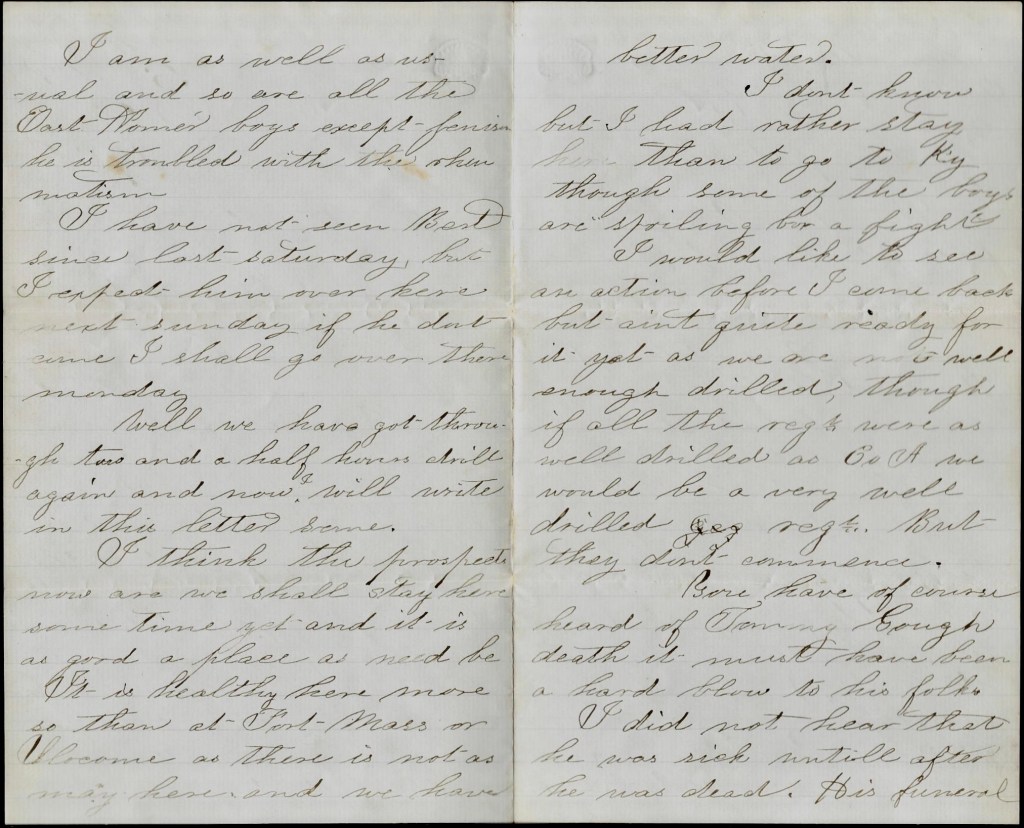 I am as well as us-
-ual and so are all the
East Homer boys except fenism
he is troubled with the rheu
matism
I have not seen Bert
since last saturday, but
I expect him over here
next sunday if he dont
come I shall go over there
monday
Well we have got throu-
-gh two and a half hours drill
again and now I will write
in this letter some.
I think the prospects
now are we shall stay here
some time yet and it is
as good a place as need be
It is healthy here more
so than at Fort Mass or
as there is not as
many here and we have
better water.
I dont know
but I had rather stay
here than to go to Ky
though some of the boys
are spoiling for a fight
I would like to see
an action before I come back
but aint quite ready for
it yet as we are not well
enough drilled, though
if all the regt were as
well drilled as Co A we
would be a very well
drilled regt. But
they dont commence.
have of course
heard of Tommy Gough
death it must have been
a hard blow to his folks
I did not hear that
he was sick untill after
he was dead. His funeral